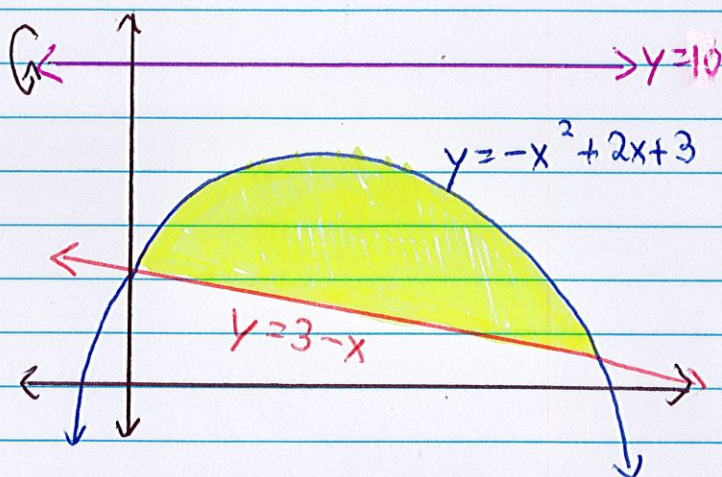 y=10
y = -x² + 2x + 3
y = 3 - x